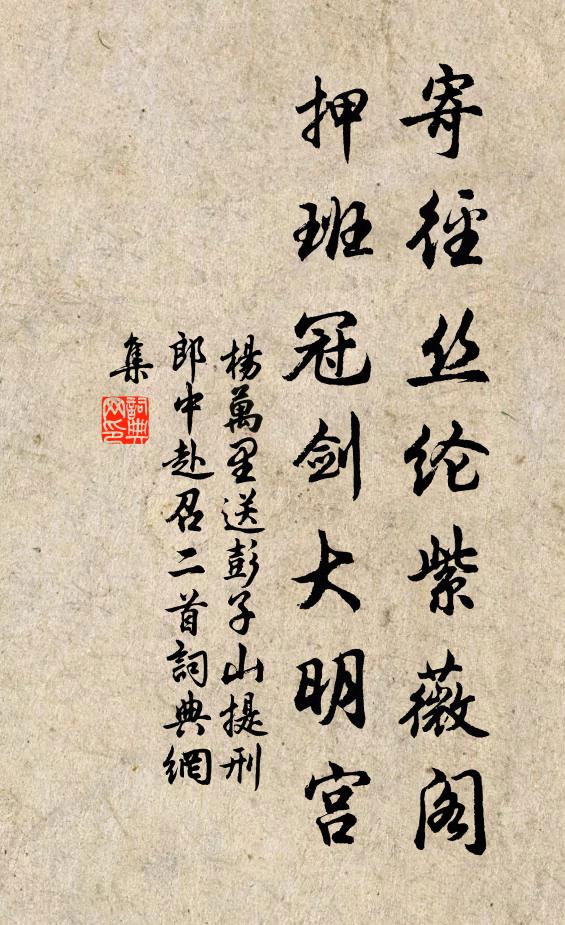 寄径丝纶紫薇阁
押班冠剑大明宫
楊萬里送彭子山提刑
郎中赴召二首詞典網
集
詞典
网印